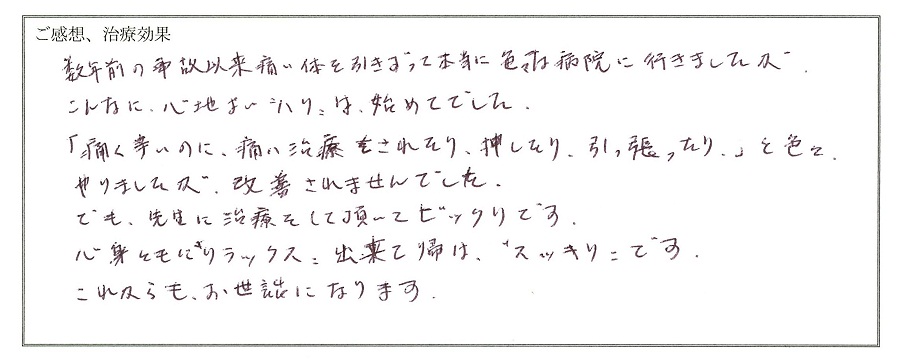 ご感想、治療効果
数年前の事故以来痛い体を引きずって本当に色々な病院に行きましたが、
こんなに、心地よい"ハリ"は、始めてでした。
「痛く辛いのに、痛い治療をされたり、押したり、引っ張ったり。」と色々、
やりましたが、改善されませんでした。
でも、先生に治療をして頂いてビックリです。
心身ともに"リラックス"出来て帰は、"スッキリ"です。
これからも、お世話になります。